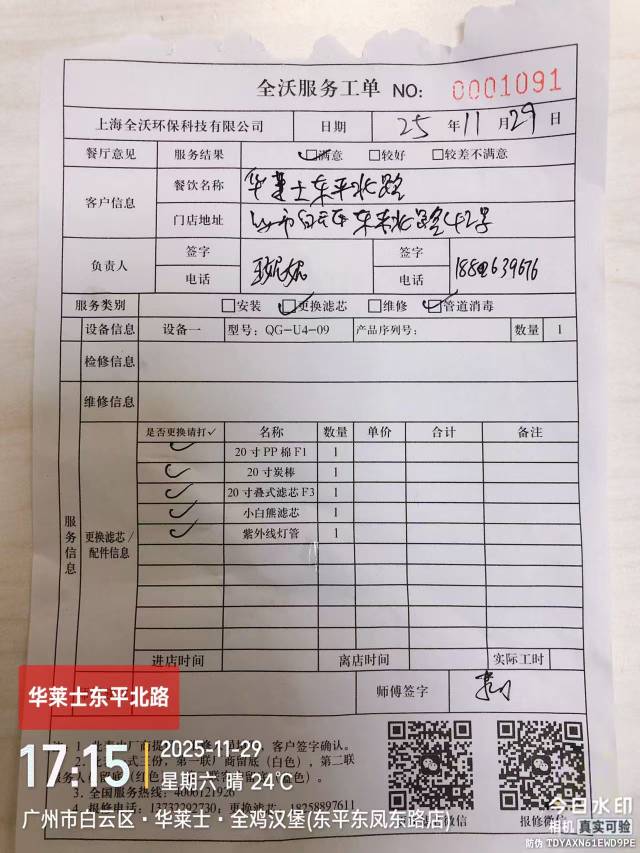 全沃服务工单 NO: 0001091
上海全沃环保科技有限公司 日期 25 年 11 月 29 日
餐厅意见 服务结果 ☑满意 □较好 □较差不满意
客户信息 餐饮名称 华莱士东平北路
门店地址 白云区东平北路42号
负责人 签字 签字
电话 电话
服务类别 □安装 ☑更换滤芯 □维修 ☑管道消毒
设备信息 设备一 型号: QG-U4-09 产品序列号: 数量 1
检修信息
维修信息
服务信息 更换滤芯/配件信息
是否更换请打✓ 名称 数量 单价 合计 备注
✓ 20寸PP棉F1 1
✓ 20寸炭棒 1
✓ 20寸叠式滤芯F3 1
✓ 小白熊滤芯 1
✓ 紫外线灯管 1
进店时间 离店时间 实际工时
师傅签字
客户签字确认。
第一联厂商留底(白色),第二联
3. 全国服务热线: 4000121926
4. 报修电话: 13732292730; 18258897611
报修微信
华莱士东平北路
17:15 2025-11-29
星期六 晴 24℃
广州市白云区·华莱士·全鸡汉堡(东平东凤东路店)
今日水印
相机 真实可验
防伪 TDYAXN61EWD9PE